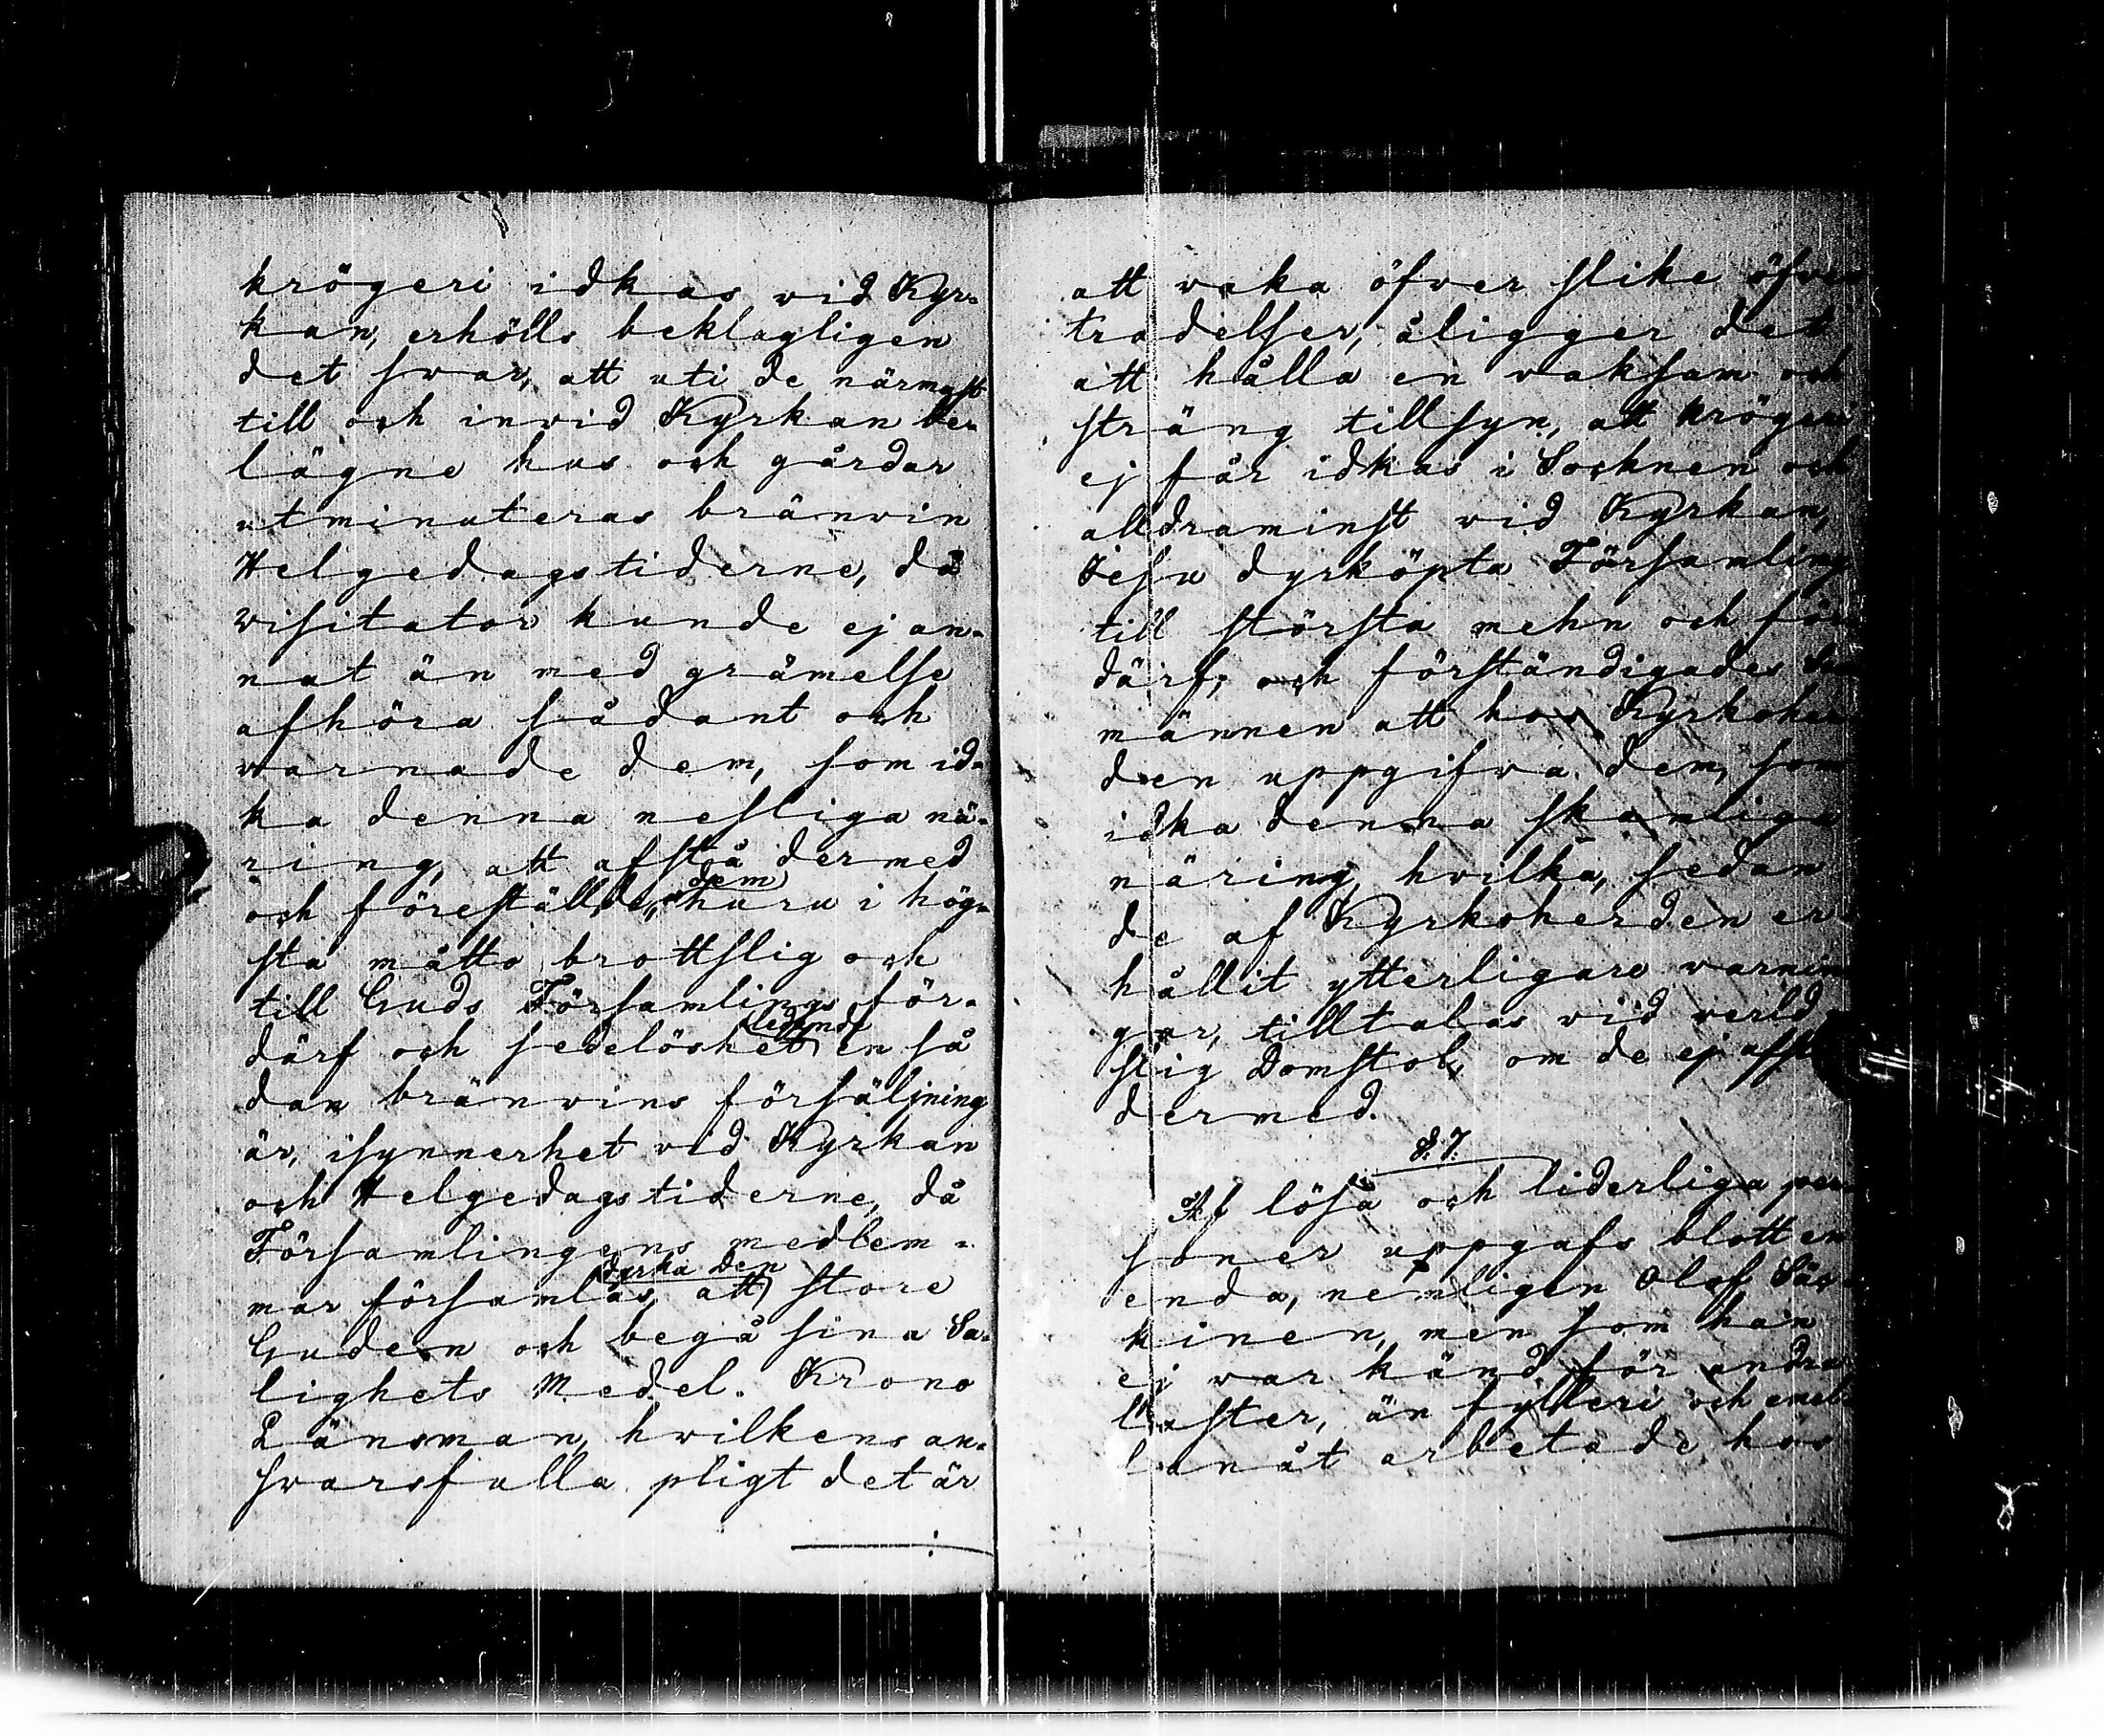 krögeri idkas vid Kyr-
kan, erhölls beklagligen
det svar, att uti de närmast
till och invid Kyrkan be-
lägne hus och gårdar
utminuteras bränvin
Helgedagstiderne, då
visitator kunde ej an-
nat än med grämelse
afhöra sådant och
varnade dem, som id-
ka denna nesliga nä-
ring, att afstå dermed
dem
och föreställde, huru i hög-
sta måtto brottslig och
till Guds Församlings för-
ledande
därf och sedelöshet en så
dan bränvins försäljning
är, isynnerhet vid Kyrkan
och Helgedagstiderne, då
Församlingens medlem-
dyrka den
mar församlas, att store
Guden och begå sina Sa-
lighets Medel. Krono
Länsman, hvilkens an-
svarsfulla pligt det är
att vaka öfver slike öfver
tradelser, åligger det
att hålla en vaksam och
sträng tillsyn, att krögeri
ej får idkas i Socknen och
alldraminst vid Kyrkan,
Jesu dyrköpta Församling
till största mehn och för
därf; och förständigades
männen att hos Kyrkoher
den uppgifva dem, som
idka denna skamliga
näring, hvilka, sedan
de af Kyrkoherden er-
hållit ytterligare varnin
gar, tilltalas vid verld
slig Domstol, om de ej afstå
dermed.
§. 7.
Af lösa och liderliga per
soner uppgafs blott en
enda, nemligen Olof Sär-
kinen, men som han
ej var känd för andra
laster, än fylleri och emel-
lanåt arbetade hos